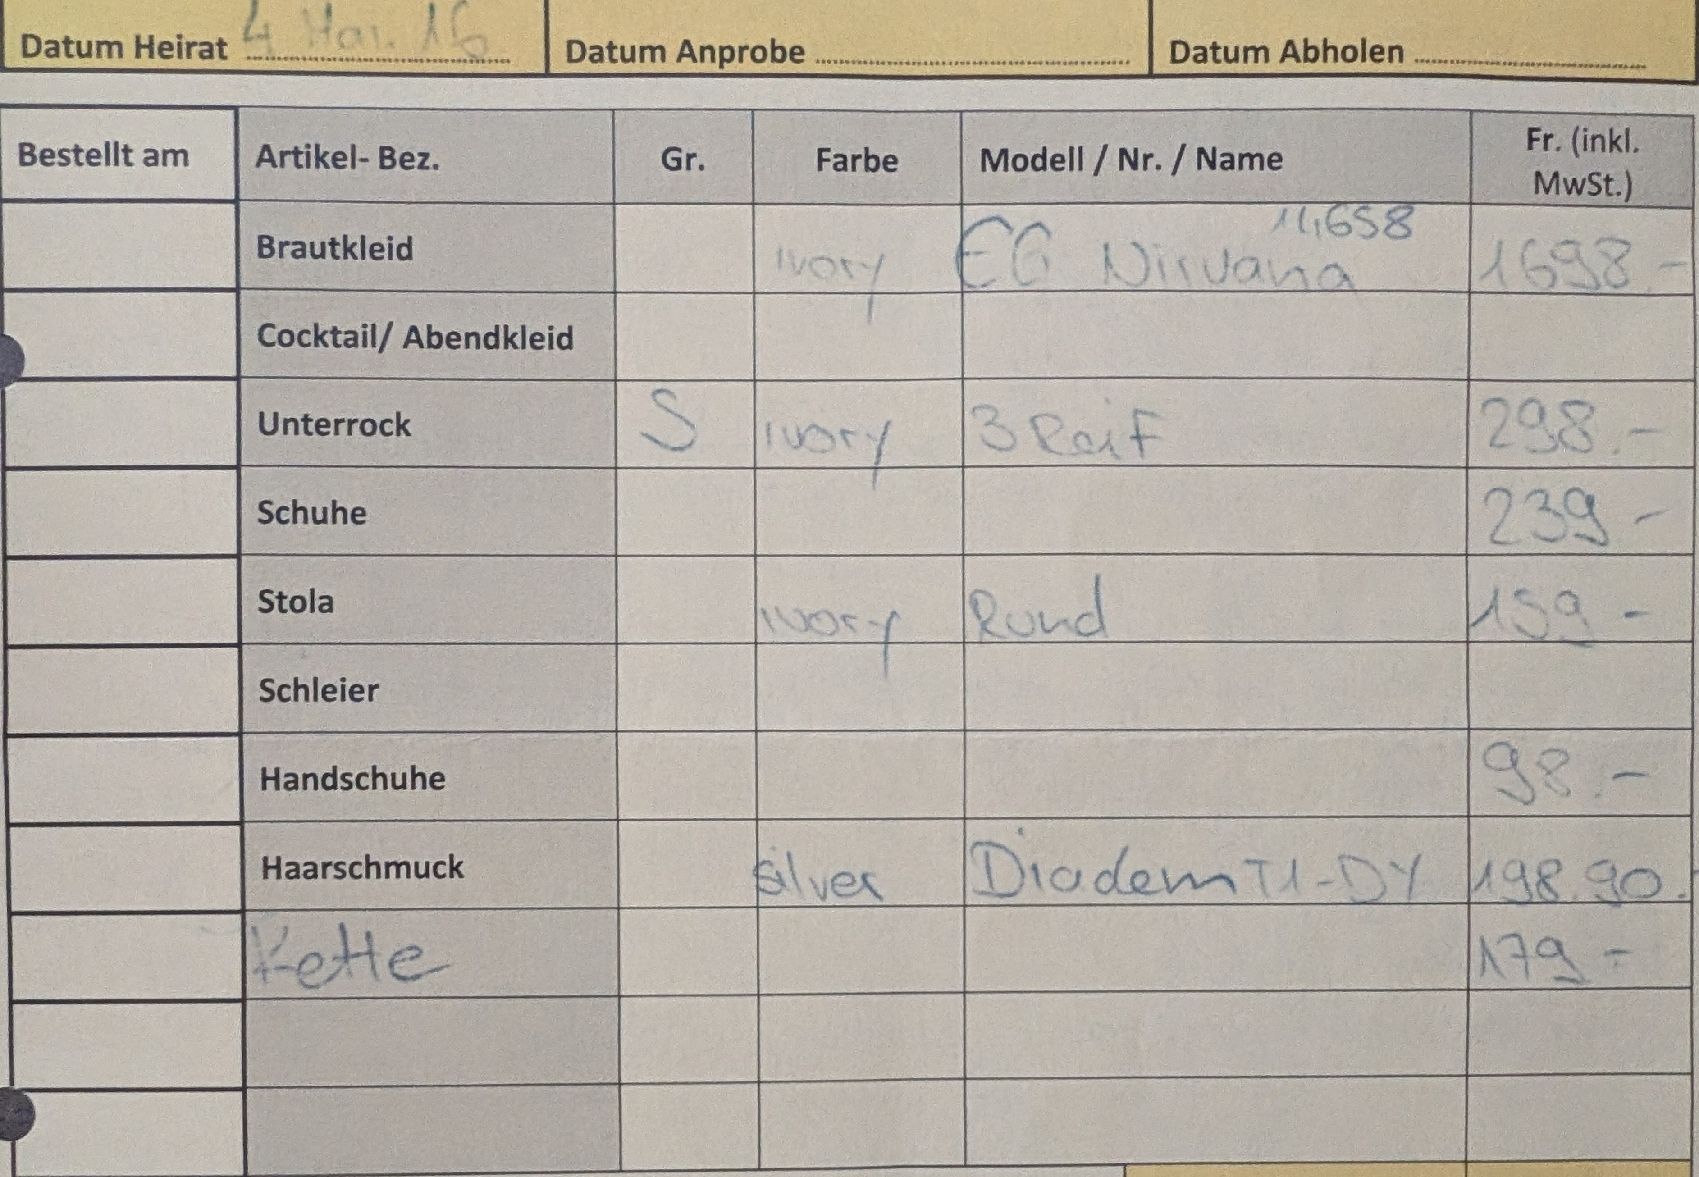 Datum Heirat 4 Mai. 16 Datum Anprobe Datum Abholen
Bestellt am Artikel- Bez. Gr. Farbe Modell / Nr. / Name Fr. (inkl. MwSt.)
11,658
Brautkleid Ivory EG Nirvana 1698.-
Cocktail/ Abendkleid
Unterrock S Ivory 3 Reif 298.-
Schuhe 239 -
Stola Ivory Rund 159 -
Schleier
Handschuhe 98.-
Haarschmuck silver Diadem T1-DY 198.90.
Kette 179 -